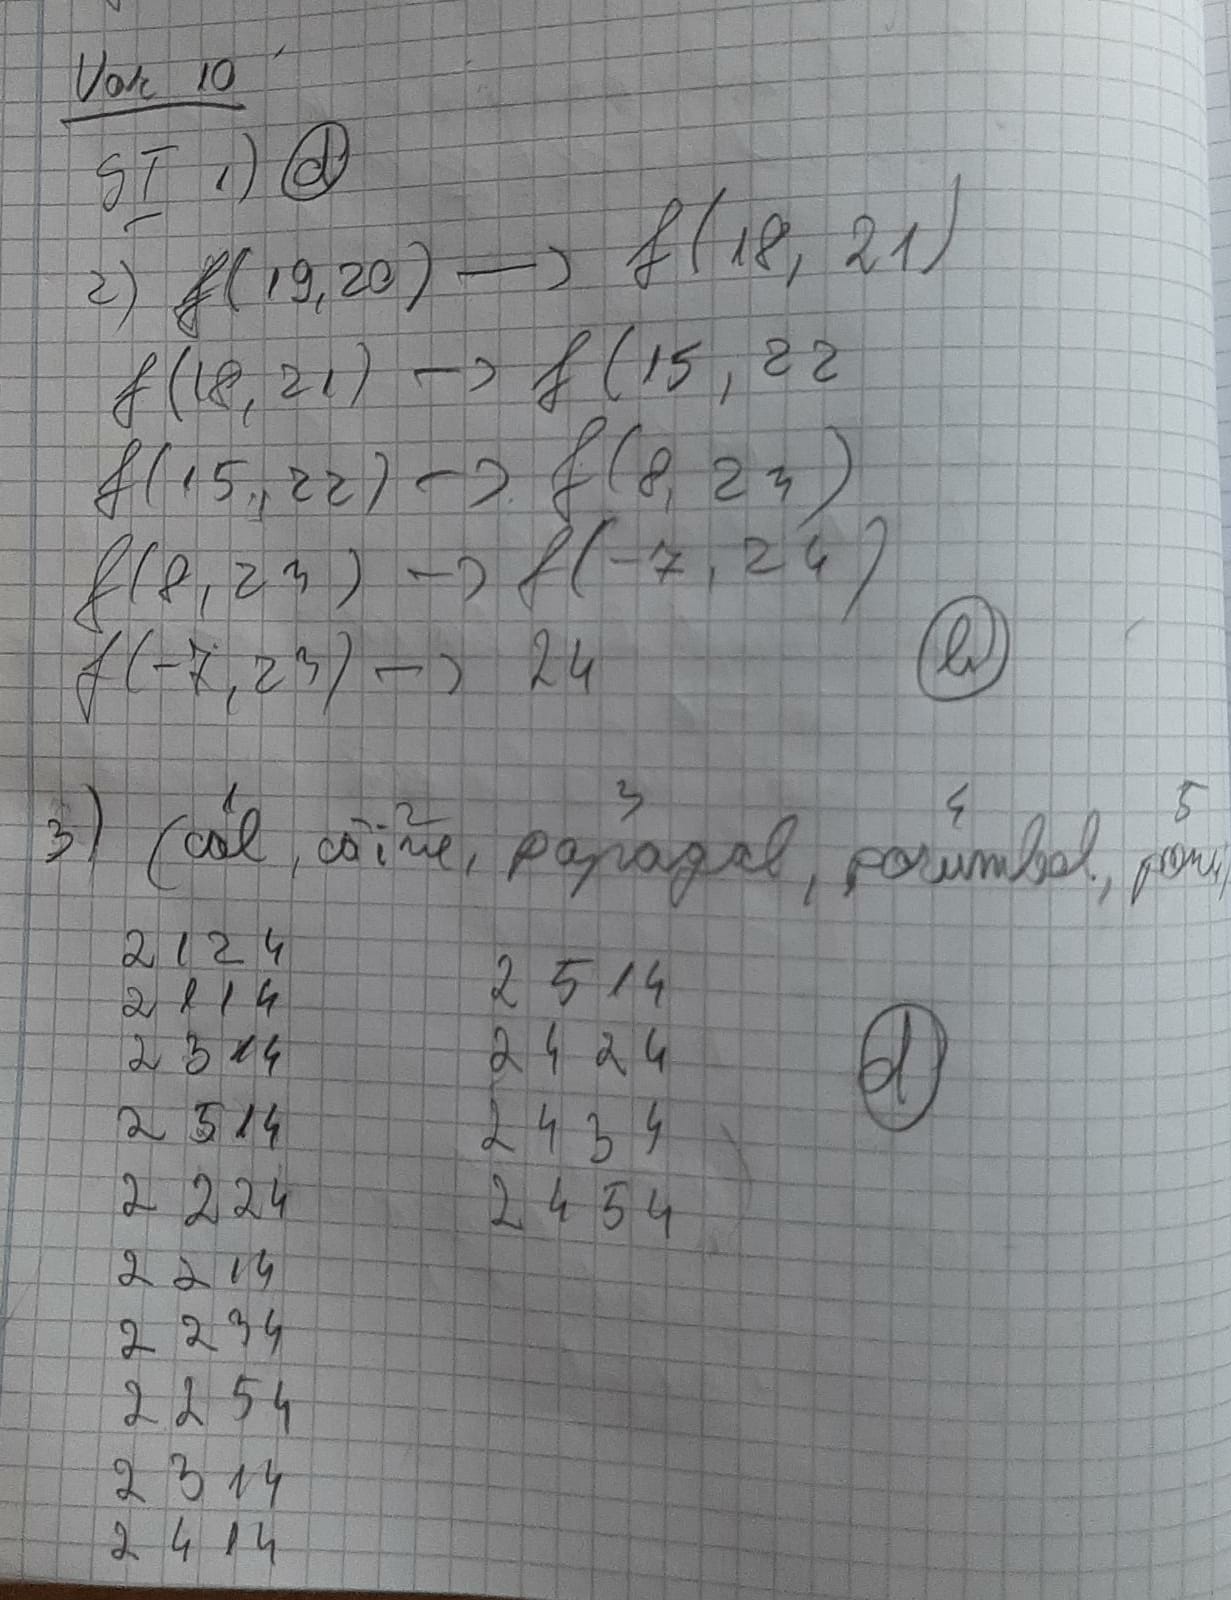 Var 10
SI 1) d
2) f(19,20) → f(18, 21)
f(18,21) → f(15, 22
f(15,22) → f(8, 23)
f(8, 23) → f(-7, 24)
f(-7, 23) → 24
b
1 2 3 4 5
3) (cal, câine, papagal, porumbel,
2 1 2 4
2 1 1 4
2 3 1 4
2 5 1 4
2 2 2 4
2 2 1 4
2 2 3 4
2 2 5 4
2 3 1 4
2 4 1 4
2 5 1 4
2 4 2 4
2 4 3 4
2 4 5 4
d